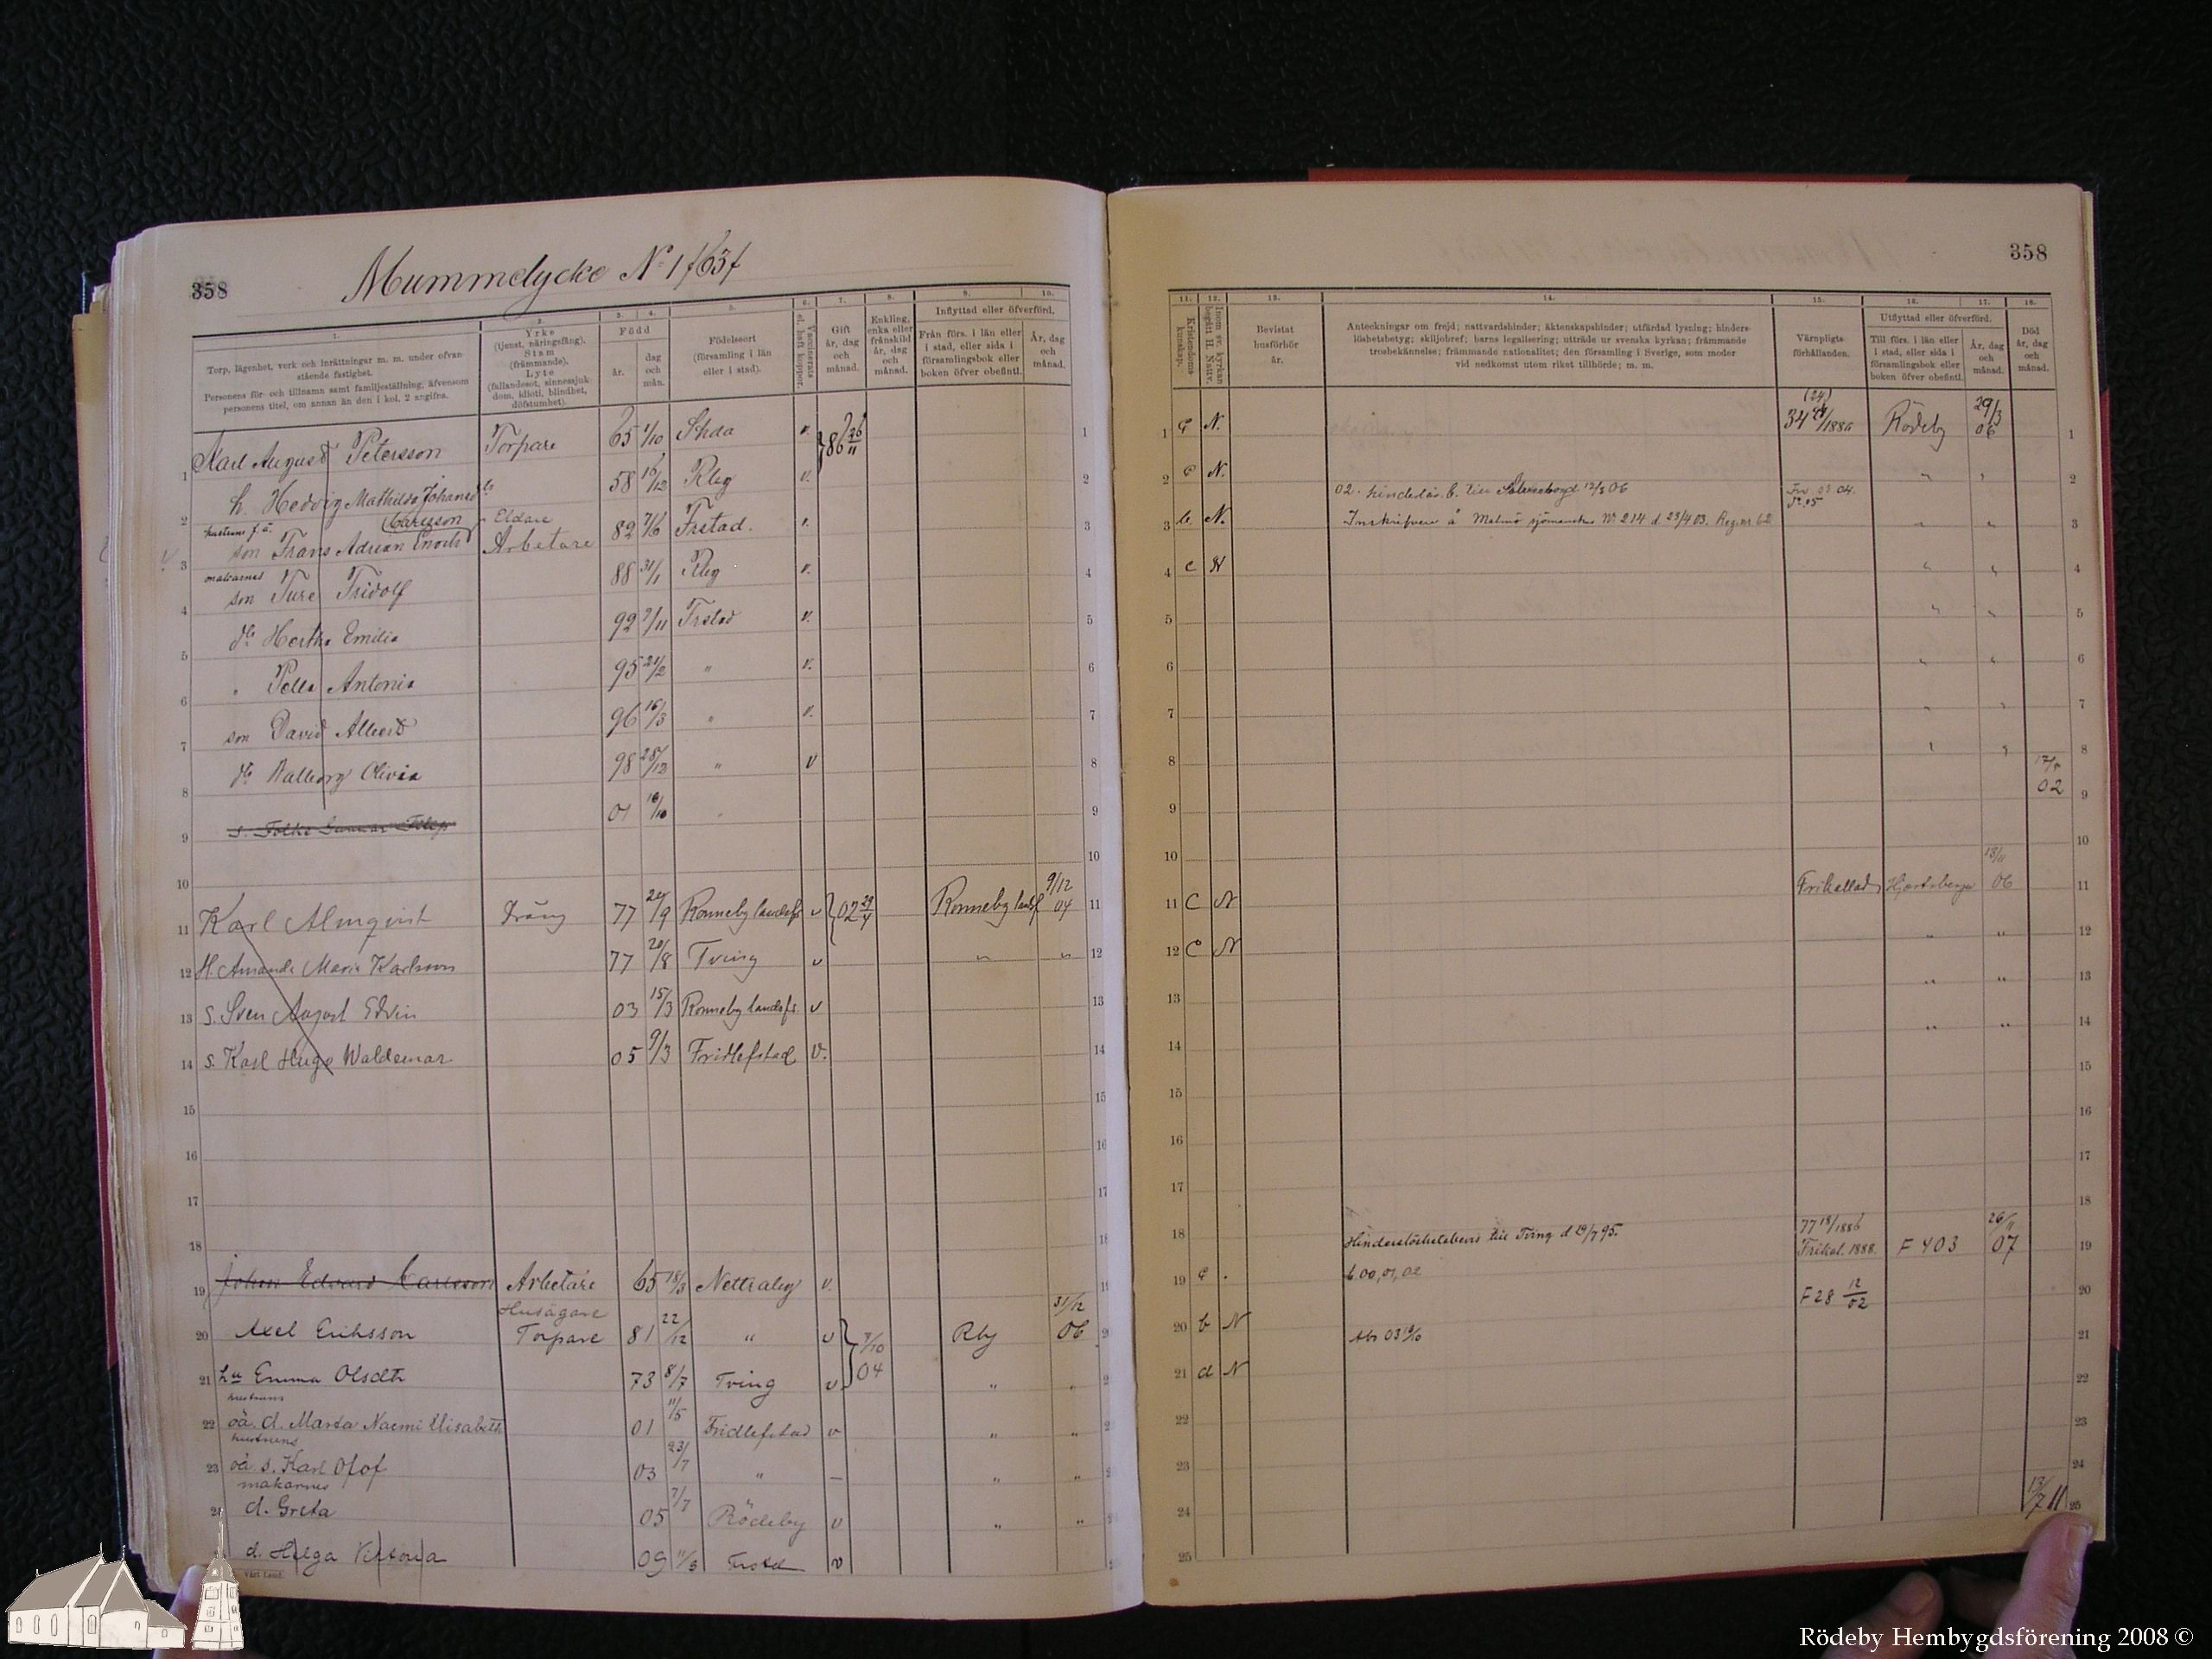 358
Mummelycke No 1 f63f
1.
Torp, lägenhet, verk och inrättningar m. m. under ofvan-
stående fastighet.
Personens för- och tillnamn samt familjeställning, äfvensom
personens titel, om annan än den i kol. 2 angifna.
2.
Yrke
(tjenst, näringsfång).
Stam
(främmande).
Lyte
(fallandesot, sinnessjuk-
dom, idioti, blindhet,
döfstumhet).
3. 4.
Född
år.
dag
och
mån.
5.
Födelseort
(församling i län
eller i stad).
6.
Vaccinerats
el. haft koppor.
7.
Gift
år, dag
och
månad.
8.
Enkling,
enka eller
frånskild
år, dag
och
månad.
9. 10.
Inflyttad eller öfverförd.
Från förs. i län eller
i stad, eller sida i
församlingsbok eller
boken öfver obefintl.
År, dag
och
månad.
1 Karl August Petersson Torpare 65 1/10 Shda v. 86 26/11 1
2 h. Hedvig Mathilda Johansd 58 16/12 Rbg v. 2
hustruns f. ä. Carlsson Eldare
3 son Frans Adrian Enoch Arbetare 82 7/6 Frstad. v. 3
makarnes
4 son Ture Fridolf 88 31/1 Rbg v. 4
5 dr Hertha Emilia 92 7/11 Frstad v. 5
6 " Pella Antonia 95 21/2 " v. 6
7 son David Albert 96 16/3 " v. 7
8 dr Valborg Olivia 98 28/12 " v 8
9 s. Folke Gunnar 01 16/10 " 9
10 10
11 Karl Almqvist Dräng 77 24/9 Ronneby landsf v 02 29/4 Ronneby landsf 9/12 04 11
12 H. Amanda Maria Karlsson 77 20/8 Tving v " " 12
13 S. Sven August Edvin 03 15/3 Ronneby landsfs. v 13
14 S. Karl Hugo Waldemar 05 9/3 Fridlefstad v. 14
15 15
16
17 17
18
19 Johan Edvard Carlsson Arbetare 65 18/3 Nettraby v.
Husägare
20 Axel Eriksson Torpare 81 22/12 " v 7/10 04 Rby 31/12 06
21 hu Emma Olsdtr 73 8/7 Tving v " "
hustruns
22 oä. d. Marta Naemi Elisabeth 01 11/5 Fridlefstad v " "
hustruns
23 oä s. Karl Olof 03 23/7 " — " "
makarnes
d. Greta 05 7/7 Rödeby v " "
d. Helga Viktoria 09 11/3 Frstd v
358
11.
Kristendoms-
kunskap.
12.
Inom sv. kyrkan
begått H. Nattv.
13.
Bevistat
husförhör
år.
14.
Anteckningar om frejd; nattvardshinder; äktenskapshinder; utfärdad lysning; hinders-
löshetsbetyg; skiljobref; barns legalisering; utträde ur svenska kyrkan; främmande
trosbekännelse; främmande nationalitet; den församling i Sverige, som moder
vid nedkomst utom riket tillhörde; m. m.
15.
Värnpligts-
förhållanden.
16. 17.
Utflyttad eller öfverförd.
Till förs. i län eller
i stad, eller sida i
församlingsbok eller
boken öfver obefintl.
År, dag
och
månad.
18.
Död
år, dag
och
månad.
(24)
1 C N. 34 /1886 Rödeby 29/3 06 1
2 C N. " " 2
02. hinderlös. b. till 12/3 06 04. 05
3 b. N. Inskrifven å Malmö sjömanshus No 214 d 23/4 03. Reg.nr 62 " " 3
4 c N " " 4
5 " " 5
6 " " 6
7 " " 7
8 " " 8
9 02 9
10 10
11 C N Frikallad Hjortsberga 13/11 06 11
12 C N " " 12
13 " " 13
14 " " 14
15 15
16 16
17 17
18 18
Hinderslöshetsbevis till Tving d 19/7 95. 77 18/1886
19 c . b. 00, 01, 02 Frikal. 1888. F 403 26/11 07 19
20 b N F 28 12/02 20
21 d N Abs 03 21
22 22
23 23
24 24
25 13/7 11 25
Rödeby Hembygdsförening 2008 ©